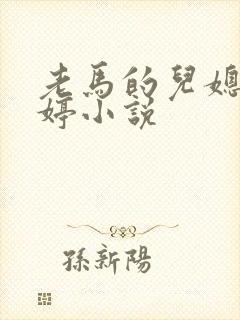 老馬的兒媳
婷小説
孫新陽